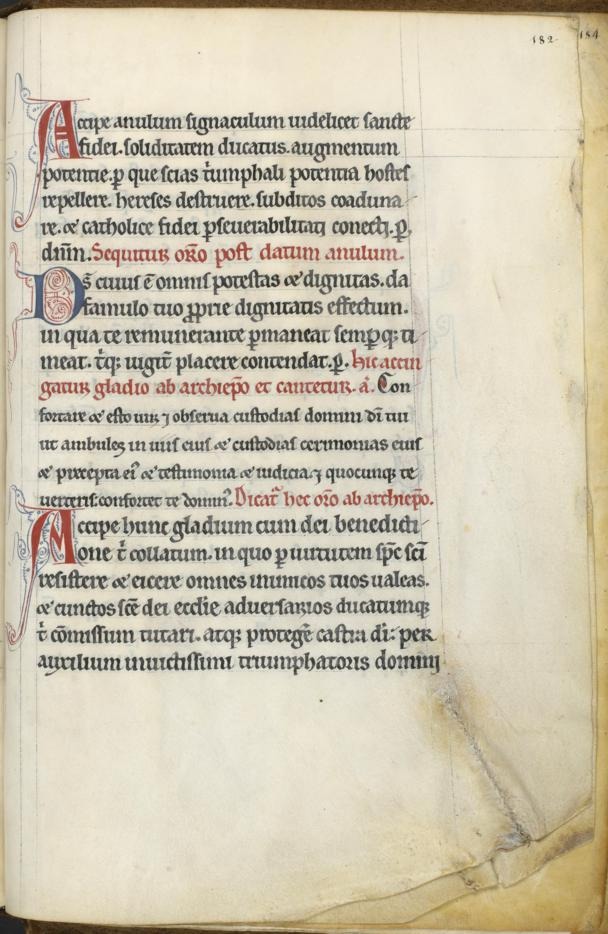 182 184
Accipe anulum signaculum uidelicet sancte
fidei. soliditatem ducatus. augmentum
potentie. ꝑ que scias t̾umphali potentia hostes
repellere. hereses destruere. subditos coaduna-
re. & catholice fidei ꝑseuerabilitati conecti. ꝑ.
dn̅m. Sequitur or̅o post datum anulum.
Ds̅ cuius e̅ omnis potestas & dignitas. da
famulo tuo ꝓprie dignitatis effectum.
in qua te remunerante ꝑmaneat semꝑq; ti-
meat. t̾q; iugit̾ placere contendat. ꝑ. hic accin
gatur gladio ab archiep̅o et cantetur. a̅. Con
fortare & esto uir ⁊ obserua custodias domini dī tui
ut ambules in uiis eius & custodias cerimonias eius
& precepta ei᷒ & testimonia & iudicia. ⁊ quocunq; te
uerteris. confortet te domin᷒. Dicat̾ hec or̅o ab archiep̅o.
Accipe hunc gladium cum dei benedicti-
one t̾ collatum. in quo ꝑ uirtutem sp̅c sc̅i
resistere & eicere omnes inimicos tuos ualeas.
& cunctos sc̅e dei eccl̅ie aduersarios ducatumq;
t̾ co̅missum tutari. atq; protege̅ castra di̅. per
auxilium inuictissimi triumphatoris domini